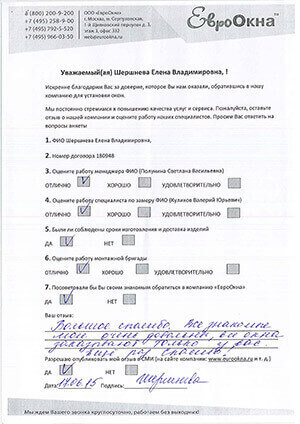 8 (800) 200-9-200
+7 (495) 258-9-00
+7 (495) 580-9-20
+7 (495) 966-03-50
ООО «ЕвроОкна»
г. Москва, м. Серпуховская,
этаж 3, офис 332
web@eurookna.ru
ЕвроОкна
Уважаемый(ая) Шершнева Елена Владимировна, !
Искренне благодарим Вас за доверие, которое Вы нам оказали, обратившись в нашу
компанию для установки окон.
Мы постоянно стремимся к повышению качества услуг и сервиса. Пожалуйста, оставьте
отзыв о нашей компании и оцените работу наших специалистов. Просим Вас ответить на
вопросы анкеты
1. ФИО Шершнева Елена Владимировна,
2. Номер договора 180948
3. Оцените работу менеджера ФИО (Полунина Светлана Васильевна)
ОТЛИЧНО ХОРОШО УДОВЛЕТВОРИТЕЛЬНО
4. Оцените работу специалиста по замеру ФИО (Куликов Валерий Юрьевич)
ОТЛИЧНО ХОРОШО УДОВЛЕТВОРИТЕЛЬНО
5. Были ли соблюдены сроки изготовления и доставки изделий
ДА НЕТ
6. Оцените работу монтажной бригады
ОТЛИЧНО ХОРОШО УДОВЛЕТВОРИТЕЛЬНО
7. Посоветовали бы Вы своим знакомым обратиться в компанию «ЕвроОкна»
ДА НЕТ
Ваш отзыв:
Большое спасибо. Все знакомые
мои очень довольны, все окна
заказывают только у вас.
Еще раз спасибо!
Разрешаю опубликовать мой отзыв (на сайте компании: www.eurookna.ru и т. д.)
ДА НЕТ
Дата: 17.06.15 Подпись: Шершнева
Мы ждем Вашего звонка круглосуточно, работаем без выходных!